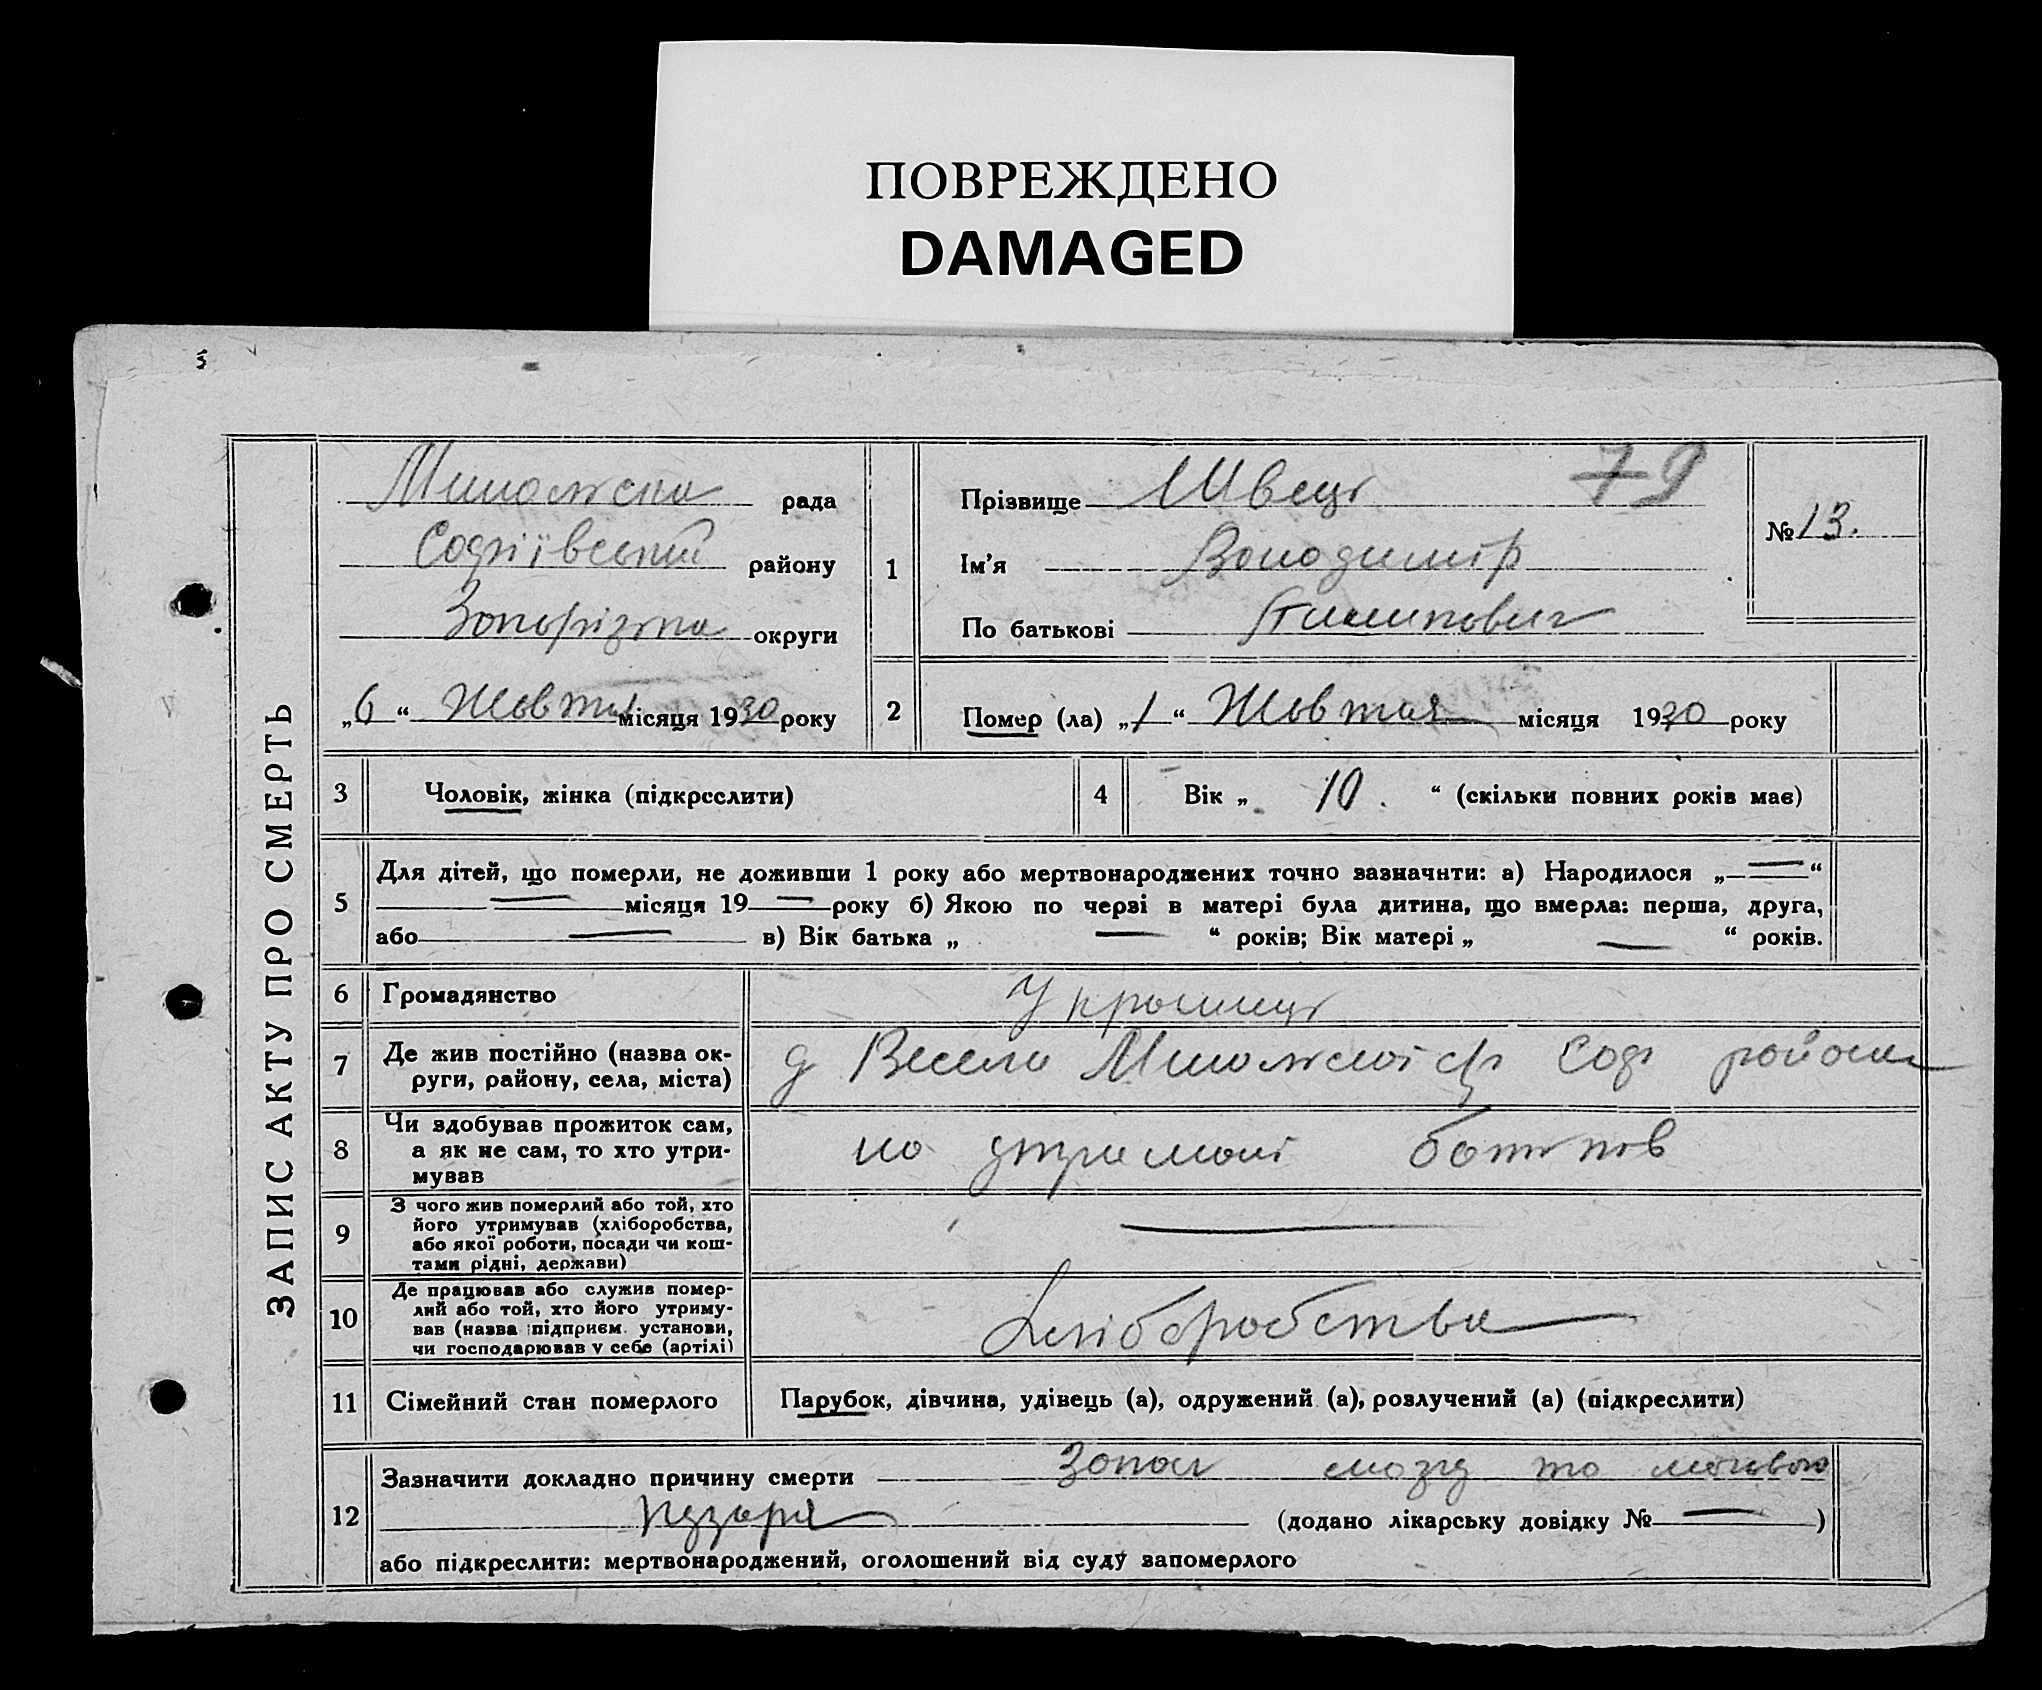 ПОВРЕЖДЕНО
DAMAGED
ЗАПИС АКТУ ПРО СМЕРТЬ
рада
Софіївський району
Запорізька округи
„6“ Жовтня місяця 1930 року
1
Прізвище Швець 79
Ім'я Володимір
По батькові Пилипович
№ 13.
2
Помер (ла) „1“ Жовтня місяця 1930 року
3
Чоловік, жінка (підкреслити)
4
Вік „ 10. “ (скільки повних років має)
5
Для дітей, що померли, не доживши 1 року або мертвонароджених точно зазначити: а) Народилося „—“
— місяця 19 — року б) Якою по черзі в матері була дитина, що вмерла: перша, друга,
або — в) Вік батька „ — “ років; Вік матері „ — “ років.
6
Громадянство
Українець
7
Де жив постійно (назва ок-
руги, району, села, міста)
Весела Соф району
8
Чи здобував прожиток сам,
а як не сам, то хто утри-
мував
на утримані батьків
9
З чого жив померлий або той, хто
його утримував (хліборобства,
або якої роботи, посади чи кош-
тами рідні, держави)
—
10
Де працював або служив помер-
лий або той, хто його утриму-
вав (назва підприєм. установи,
чи господарював у себе (артілі)
Хліборобства
11
Сімейний стан померлого
Парубок, дівчина, удівець (а), одружений (а), розлучений (а) (підкреслити)
12
Зазначити докладно причину смерти Запал мозгу та
пузаря (додано лікарську довідку № — )
або підкреслити: мертвонароджений, оголошений від суду запомерлого